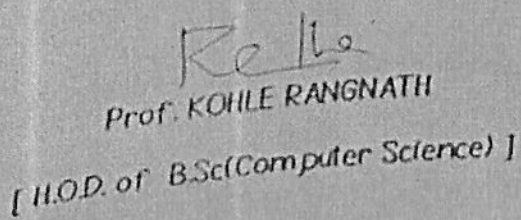 Prof. KOHLE RANGNATH
[ H.O.D. of B.Sc(Computer Science) ]